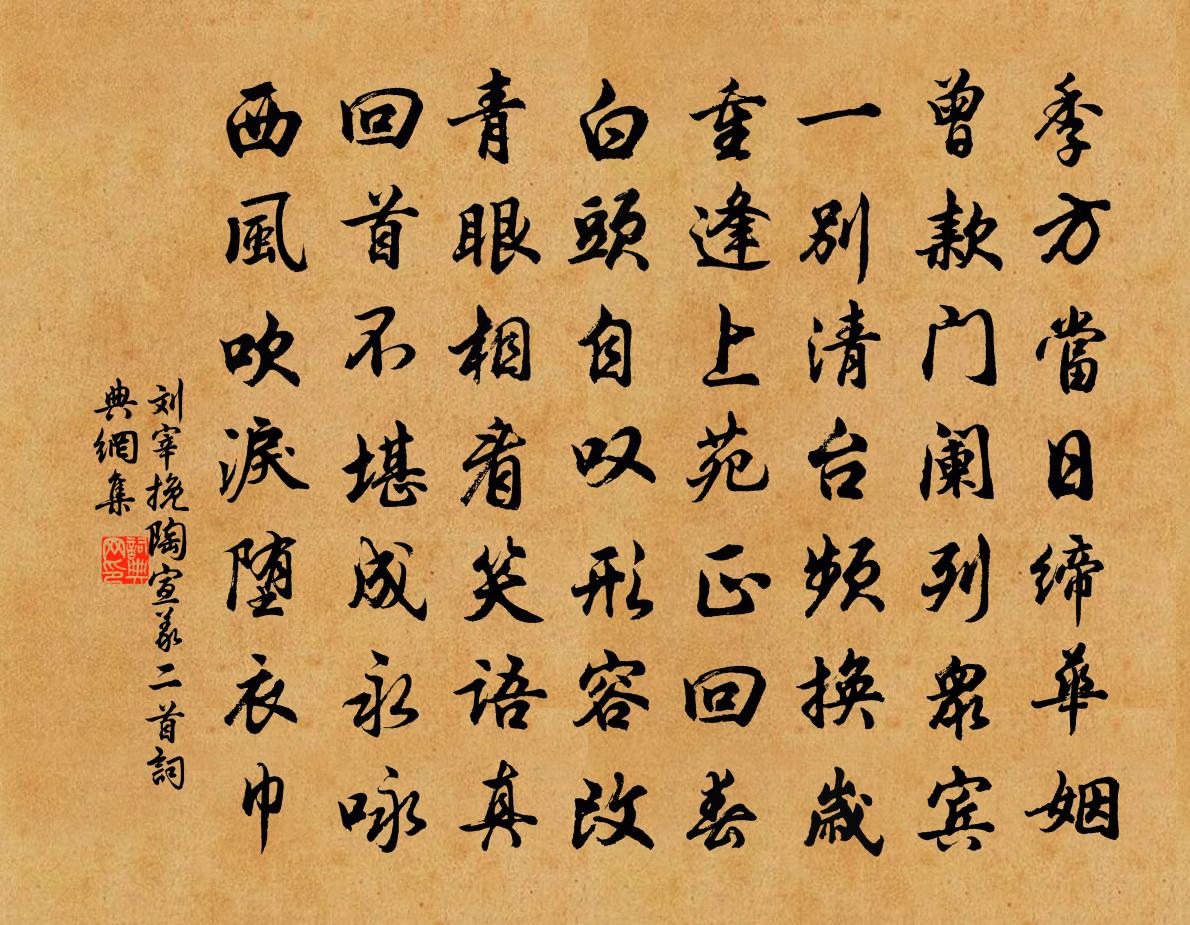 季方當日締華姻
曾款门阑列眾宾
一别清台频换歲
重逢上苑正回春
白頭自叹形容改
青眼相看笑语真
回首不堪成永咏
西風吹淚堕衣巾
刘宰挽陶宣義二首詞
典網集
詞典
网印